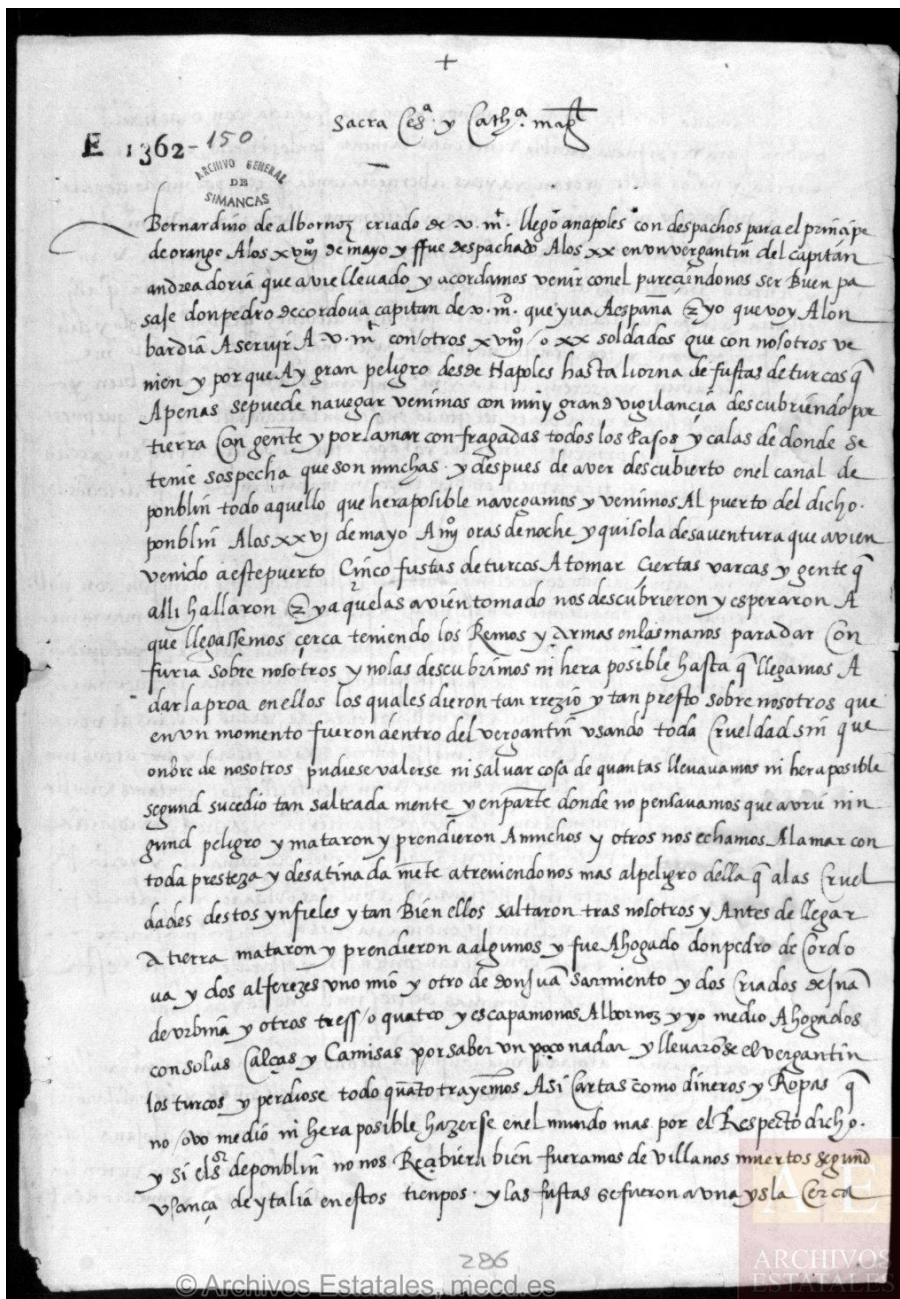 +
Sacra Ces.ª y Cath.ª mag.t
E 1362-150
ARCHIVO GENERAL
DE
SIMANCAS
Bernardino de albornoz criado de v. mt. llegó anapoles con despachos para el prinçipe
de orange Alos xviijº de mayo y ffue despachado Alos xx en vn vergantin del capitan
andrea doria que avie llevado y acordamos venir conel pareçiendonos ser Buen pa
saje don pedro de cordova capitan de v. mt. que yua Aespaña & yo que voy Alon
bardia Aservir A v. mt. con otros xviijº /o xx soldados que con nosotros ve
nien y por que Ay gran peligro desde Napoles hasta liorna de fustas de turcos q̄
Apenas sepuede navegar venimos con muy grand vigilançia descubriendo por
tierra Con gente y por lamar con fragadas todos los Pasos y calas de donde se
tenie sospecha que son munchas . y despues de aver descubierto enel canal de
ponblin todo aquello que hera posible navegamos y venimos Al puerto del dicho .
ponblin Alos xxvj de mayo A iijº oras de noche y quiso la desaventura que avien
venido a este puerto Çinco fustas de turcos Atomar Çiertas varcas y gente q̄
alli hallaron & ya quelas avien tomado nos descubrieron y esperaron A
que llegassemos çerca teniendo los Remos y Armas enlas manos para dar Con
furia sobre nosotros y nolas descubrimos ni hera posible hasta q̄ llegamos A
dar la proa en ellos los quales dieron tan rrezio y tan presto sobre nosotros que
en vn momento fueron dentro del vergantin vsando toda Crueldad sin que
onbre de nosotros pudiese valerse ni saluar cosa de quantas llevauamos ni hera posible
segund suçedio tan salteada mente y en parte donde no pensauamos que avrie nin
gund peligro y mataron y prendieron Amunchos y otros nos echamos Alamar con
toda presteza y desatinada mete atreviendonos mas al peligro della q̄ alas Cruel
dades destos ynfieles y tan Bien ellos saltaron tras nosotros y Antes de llegar
A tierra mataron y prendieron a algunos y fue Ahogado don pedro de Cordo
va y dos alferezes uno mio y otro de don juā Sarmiento y dos Criados de juā
de vrbina y otros tress /o quatro y escapamonos Albornoz y yo medio Ahogados
con solas Calças y Camisas por saber vn poco nadar y llevarōse el vergantin
los turcos y perdiose todo quāto trayemos Asi Cartas como dineros y Ropas q̄
no /ovo medio ni hera posible hazerse enel mundo mas por el Respecto dicho .
y si el s.or de ponblin no nos Reçibiera bien fueramos de villanos muertos segund
vsança de ytalia en estos tienpos . y las fustas se fueron a vna ysla Çerca
286
© Archivos Estatales, mecd.es
AE
ARCHIVOS
ESTATALES